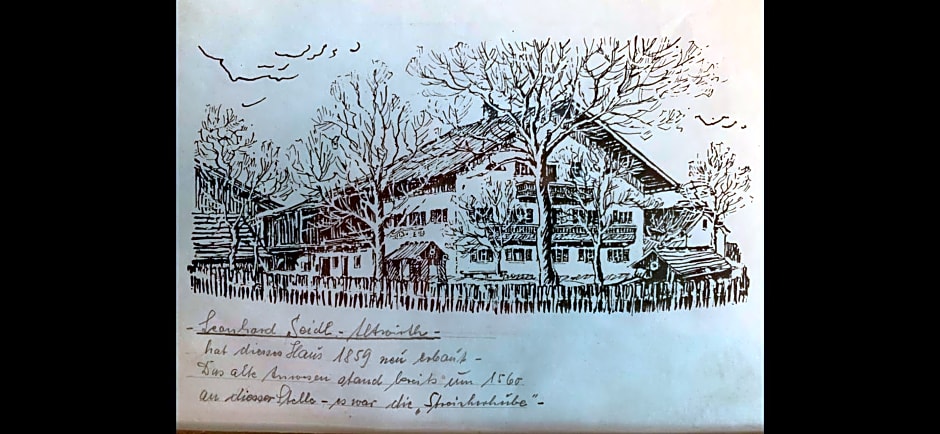 - Leonhard Seidl - Altwirth -
hat dieses Haus 1859 neu erbaut -
Das alte Anwesen stand bereits um 1560
an dieser Stelle - es war die „Streicherhube" -